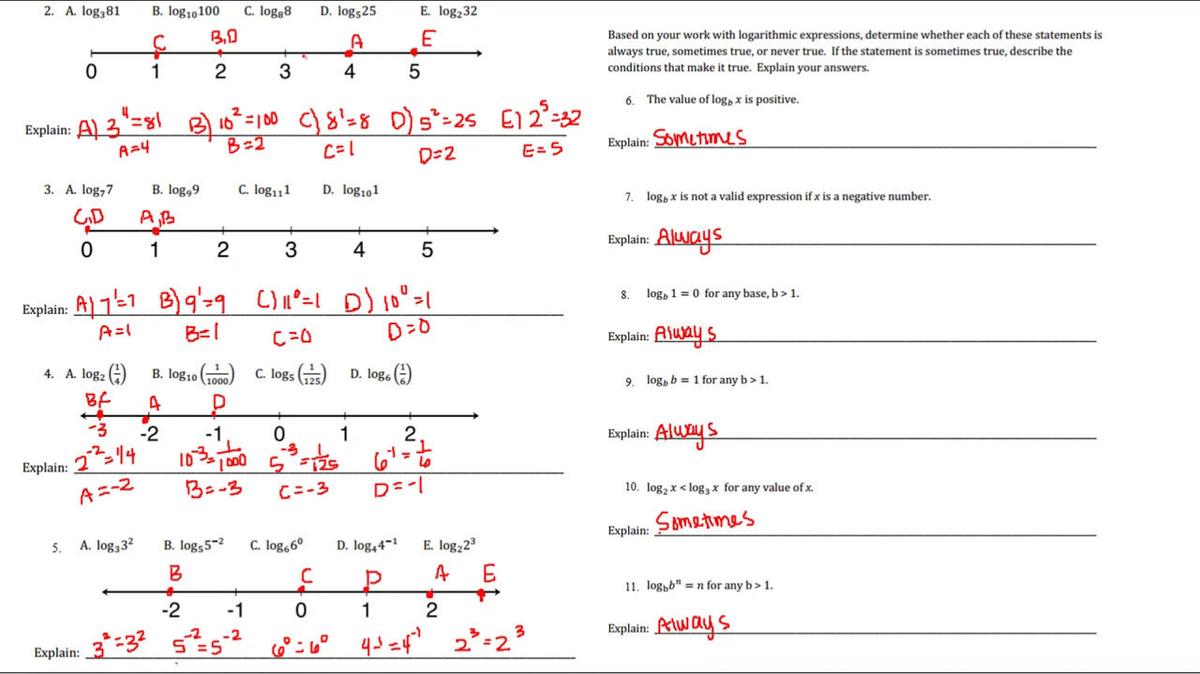 2. A. log₃81 B. log₁₀100 C. log₈8 D. log₅25 E. log₂32
C B,D A E
0 1 2 3 4 5
Explain: A) 3⁴=81 B) 10²=100 C) 8¹=8 D) 5²=25 E) 2⁵=32
A=4 B=2 C=1 D=2 E=5
3. A. log₇7 B. log₉9 C. log₁₁1 D. log₁₀1
C,D A,B
0 1 2 3 4 5
Explain: A) 7¹=7 B) 9¹=9 C) 11⁰=1 D) 10⁰=1
A=1 B=1 C=0 D=0
4. A. log₂(1/4) B. log₁₀(1/1000) C. log₅(1/125) D. log₆(1/6)
A D
-3 -2 -1 0 1 2
Explain: 2⁻²=1/4 10⁻³=1/1000 5⁻³=1/125 6⁻¹=1/6
A=-2 B=-3 C=-3 D=-1
5. A. log₃3² B. log₅5⁻² C. log₆6⁰ D. log₄4⁻¹ E. log₂2³
B C D A E
-2 -1 0 1 2
Explain: 3²=3² 5⁻²=5⁻² 6⁰=6⁰ 4⁻¹=4⁻¹ 2³=2³
Based on your work with logarithmic expressions, determine whether each of these statements is
always true, sometimes true, or never true. If the statement is sometimes true, describe the
conditions that make it true. Explain your answers.
6. The value of log_b x is positive.
Explain: Sometimes
7. log_b x is not a valid expression if x is a negative number.
Explain: Always
8. log_b 1 = 0 for any base, b > 1.
Explain: Always
9. log_b b = 1 for any b > 1.
Explain: Always
10. log₂ x < log₃ x for any value of x.
Explain: Sometimes
11. log_b bⁿ = n for any b > 1.
Explain: Always